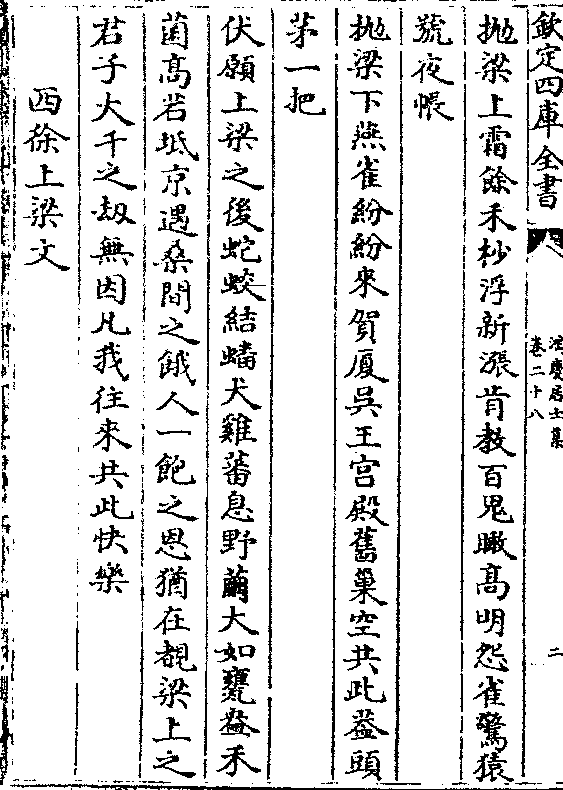 欽定四庫全書
鴻慶居士集
卷二十八
二
抛梁上霤餘禾杪浮新漲肯教百鬼瞰髙明怨雀驚猿
號夜帳
抛梁下燕雀紛紛來賀厦吳王宫殿舊巢空共此葢頭
茅一把
伏願上梁之後蛇蛟結蟠犬雞蕃息野繭大如甕盎禾
囷髙若坻京遇桑間之餓人一飽之恩猶在覩梁上之
君子大千之劫無因凡我往來共此快樂
西徐上梁文